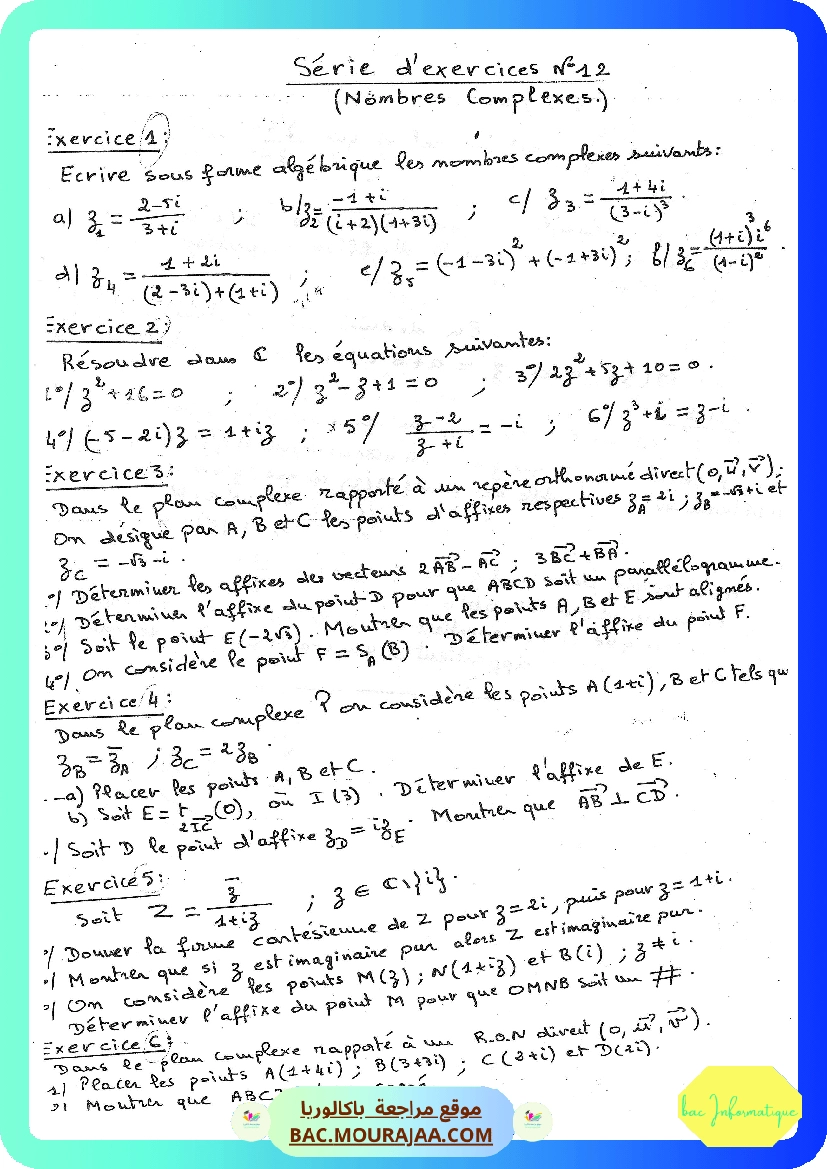 Série d'exercices N°12
(Nombres Complexes.)
Exercice 1:
Ecrire sous forme algébrique les nombres complexes suivants:
a) z₁ = (2-5i)/(3+i) ; b) z₂ = (-1+i)/((i+2)(1+3i)) ; c) z₃ = (1+4i)/(3-i)³
d) z₄ = (1+2i)/((2-3i)+(1+i)) ; e) z₅ = (-1-3i)² + (-1+3i)² ; f) z₆ = (1+i)³i⁶/(1-i)² .
Exercice 2:
Résoudre dans ℂ les équations suivantes:
1°/ z² + 16 = 0 ; 2°/ z² - z + 1 = 0 ; 3°/ 2z² + 5z + 10 = 0 .
4°/ (-5-2i)z = 1+iz ; 5°/ (z-2)/(z+i) = -i ; 6°/ z³+i = z-i .
Exercice 3:
Dans le plan complexe rapporté à un repère orthonormé direct (o,u⃗,v⃗);
On désigne par A, B et C les points d'affixes respectives z_A = 2i ; z_B = -√3+i et
z_C = -√3-i .
°/ Déterminer les affixes des vecteurs 2AB⃗ - AC⃗ ; 3BC⃗ + BA⃗ .
°/ Déterminer l'affixe du point D pour que ABCD soit un parallélogramme.
3°/ Soit le point E(-2√3) . Montrer que les points A, B et E sont alignés.
4°/ On considère le point F = S_A(B) . Déterminer l'affixe du point F.
Exercice 4:
Dans le plan complexe P on considère les points A(1+i), B et C tels qu
z_B = z̄_A ; z_C = 2z_B .
-a) Placer les points A, B et C.
b) Soit E = t_2IC⃗ (O), où I(3) . Déterminer l'affixe de E.
°/ Soit D le point d'affixe z_D = iz_E . Montrer que AB⃗ ⊥ CD⃗ .
Exercice 5:
Soit Z = z̄/(1+iz) ; z ∈ ℂ\{i}.
°/ Donner la forme cartésienne de Z pour z = 2i, puis pour z = 1+i.
°/ Montrer que si z est imaginaire pur alors Z est imaginaire pur.
°/ On considère les points M(z) ; N(1+iz) et B(i) ; z ≠ i .
Déterminer l'affixe du point M pour que OMNB soit un #.
Exercice 6:
Dans le plan complexe rapporté à un R.O.N direct (o,u⃗,v⃗).
1) Placer les points A(1+4i) ; B(3+3i) ; C(2+i) et D(2i).
2) Montrer que ABC
موقع مراجعة باكالوريا
BAC.MOURAJAA.COM
bac Informatique